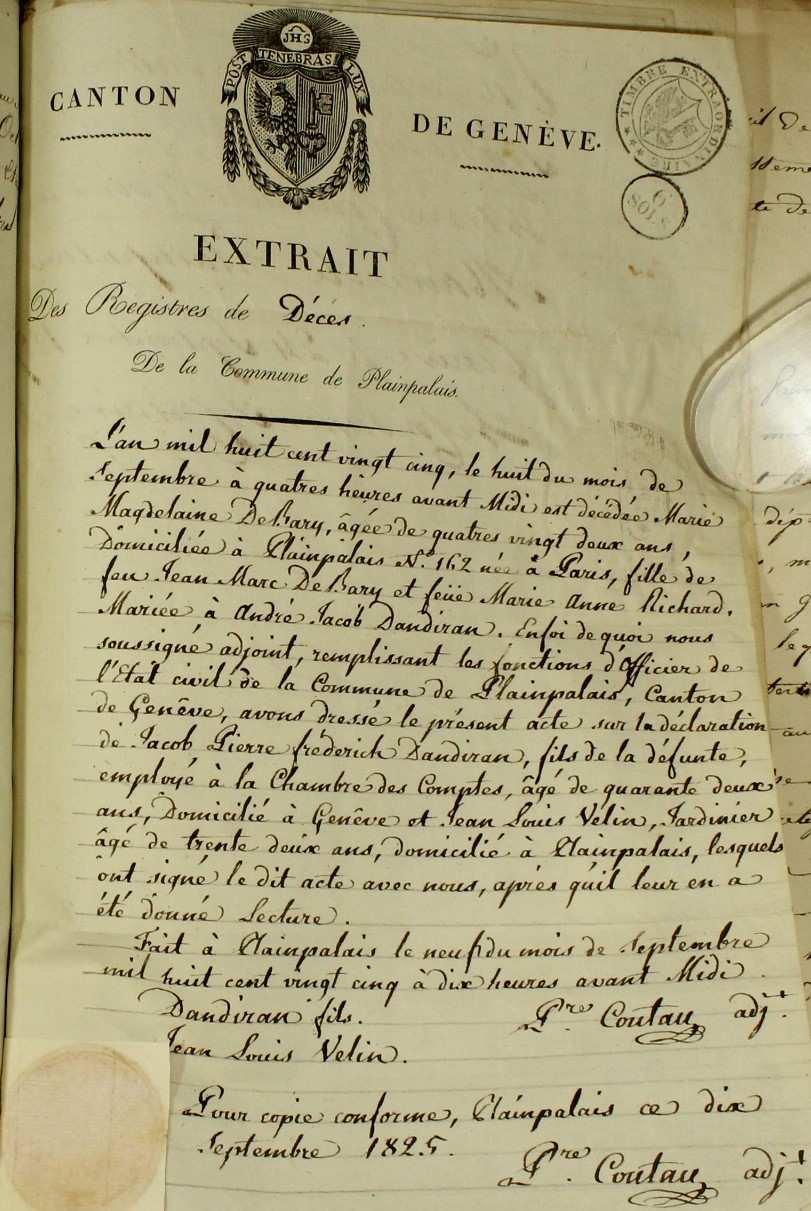 JHS
POST TENEBRAS LUX
CANTON DE GENÈVE.
TIMBRE EXTRAORDINAIRE
6 SOLS
EXTRAIT
Des Registres de Décès.
De la Commune de Plainpalais.
L'an mil huit cent vingt cinq, le huit du mois de
Septembre à quatres heures avant Midi est décédée Marie
Magdelaine DeBary, âgée de quatres vingt deux ans,
Domiciliée à Plainpalais N.º 162 née à Paris, fille de
feu Jean Marc DeBary et feüe Marie Anne Richard.
Mariée, à André Jacob Dandiran. Enfoi de quoi nous
soussigné adjoint, remplissant les fonctions d'Officier de
l'Etat civil de la Commune de Plainpalais, Canton
de Genêve, avons dressé le présent acte sur la déclaration
de Jacob Pierre fréderich Dandiran, fils de la défunte,
employé à la Chambre des Comptes, âgé de quarante deux
ans, Domicilié à Genêve et Jean Louis Vélin, Jardinier
âgé de trente deux ans, domicilié à Plainpalais, lesquels
ont signé le dit acte avec nous, après qu'il leur en a
été donné Lecture.
Fait à Plainpalais le neuf du mois de Septembre
mil huit cent vingt cinq à dix heures avant Midi.
Dandiran fils. P.re Coutau adj.t
Jean Louis Velin.
Pour copie conforme, Plainpalais ce dix
Septembre 1825.
P.re Coutau adj.t